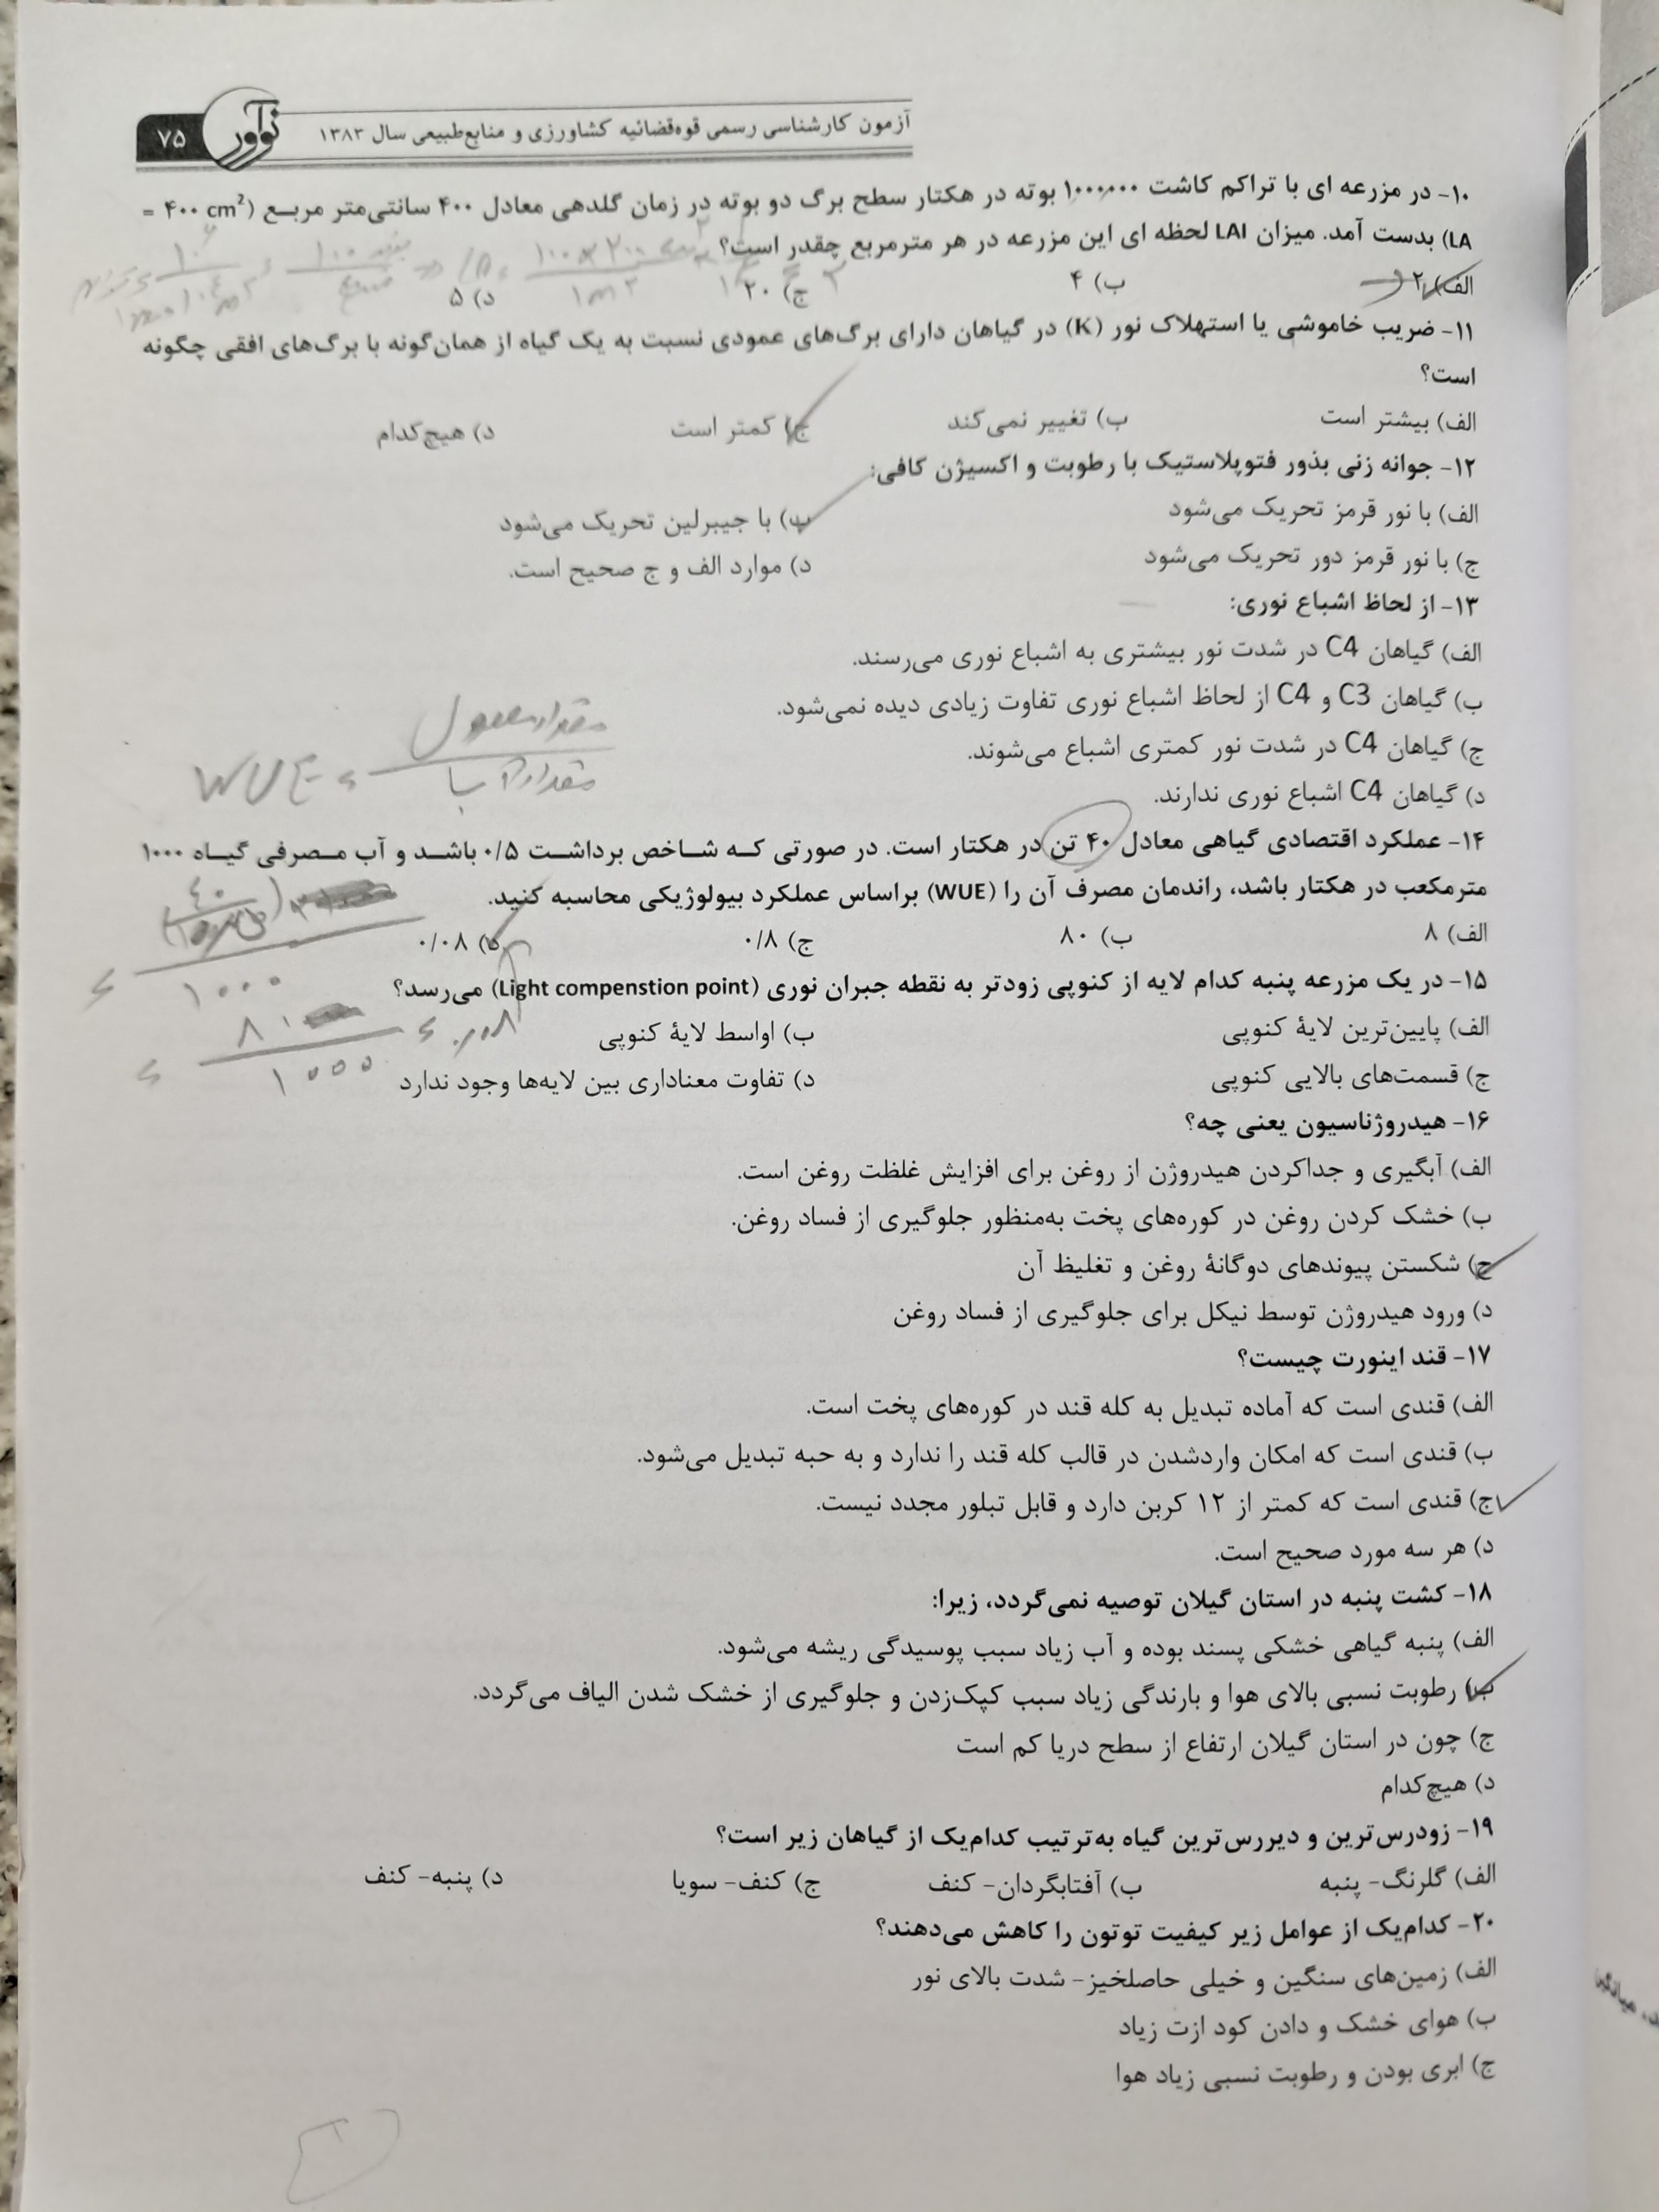 آزمون کارشناسی رسمی قوه‌قضائیه کشاورزی و منابع‌طبیعی سال ۱۳۸۳
نوآور
۷۵
۱۰- در مزرعه ای با تراکم کاشت ۱۰۰۰،۰۰۰ بوته در هکتار سطح برگ دو بوته در زمان گلدهی معادل ۴۰۰ سانتی‌متر مربـع (400 cm² =
LA) بدست آمد. میزان LAI لحظه ای این مزرعه در هر مترمربع چقدر است؟
الف) ۲ ب) ۴ ج) ۲۰ د) ۵
۱۱- ضریب خاموشی یا استهلاک نور (K) در گیاهان دارای برگ‌های عمودی نسبت به یک گیاه از همان‌گونه با برگ‌های افقی چگونه
است؟
الف) بیشتر است ب) تغییر نمی‌کند ج) کمتر است د) هیچ‌کدام
۱۲- جوانه زنی بذور فتوپلاستیک با رطوبت و اکسیژن کافی:
الف) با نور قرمز تحریک می‌شود ب) با جیبرلین تحریک می‌شود
ج) با نور قرمز دور تحریک می‌شود د) موارد الف و ج صحیح است.
۱۳- از لحاظ اشباع نوری:
الف) گیاهان C4 در شدت نور بیشتری به اشباع نوری می‌رسند.
ب) گیاهان C3 و C4 از لحاظ اشباع نوری تفاوت زیادی دیده نمی‌شود.
ج) گیاهان C4 در شدت نور کمتری اشباع می‌شوند.
د) گیاهان C4 اشباع نوری ندارند.
WUE = مقدار محصول
مقدار آب
۱۴- عملکرد اقتصادی گیاهی معادل ۴۰ تن در هکتار است. در صورتی کـه شـاخص برداشـت ۰/۵ باشـد و آب مـصرفی گیـاه ۱۰۰۰
مترمکعب در هکتار باشد، راندمان مصرف آن را (WUE) براساس عملکرد بیولوژیکی محاسبه کنید.
الف) ۸ ب) ۸۰ ج) ۰/۸ د) ۰/۰۸
۱۰۰۰
۱۵- در یک مزرعه پنبه کدام لایه از کنوپی زودتر به نقطه جبران نوری (Light compenstion point) می‌رسد؟
الف) پایین‌ترین لایهٔ کنوپی ب) اواسط لایهٔ کنوپی
۱۰۰۰
ج) قسمت‌های بالایی کنوپی د) تفاوت معناداری بین لایه‌ها وجود ندارد
۱۶- هیدروژناسیون یعنی چه؟
الف) آبگیری و جداکردن هیدروژن از روغن برای افزایش غلظت روغن است.
ب) خشک کردن روغن در کوره‌های پخت به‌منظور جلوگیری از فساد روغن.
ج) شکستن پیوندهای دوگانهٔ روغن و تغلیظ آن
د) ورود هیدروژن توسط نیکل برای جلوگیری از فساد روغن
۱۷- قند اینورت چیست؟
الف) قندی است که آماده تبدیل به کله قند در کوره‌های پخت است.
ب) قندی است که امکان واردشدن در قالب کله قند را ندارد و به حبه تبدیل می‌شود.
ج) قندی است که کمتر از ۱۲ کربن دارد و قابل تبلور مجدد نیست.
د) هر سه مورد صحیح است.
۱۸- کشت پنبه در استان گیلان توصیه نمی‌گردد، زیرا:
الف) پنبه گیاهی خشکی پسند بوده و آب زیاد سبب پوسیدگی ریشه می‌شود.
ب) رطوبت نسبی بالای هوا و بارندگی زیاد سبب کپک‌زدن و جلوگیری از خشک شدن الیاف می‌گردد.
ج) چون در استان گیلان ارتفاع از سطح دریا کم است
د) هیچ‌کدام
۱۹- زودرس‌ترین و دیررس‌ترین گیاه به‌ترتیب کدام‌یک از گیاهان زیر است؟
الف) گلرنگ- پنبه ب) آفتابگردان- کنف ج) کنف- سویا د) پنبه- کنف
۲۰- کدام‌یک از عوامل زیر کیفیت توتون را کاهش می‌دهند؟
الف) زمین‌های سنگین و خیلی حاصلخیز- شدت بالای نور
ب) هوای خشک و دادن کود ازت زیاد
ج) ابری بودن و رطوبت نسبی زیاد هوا